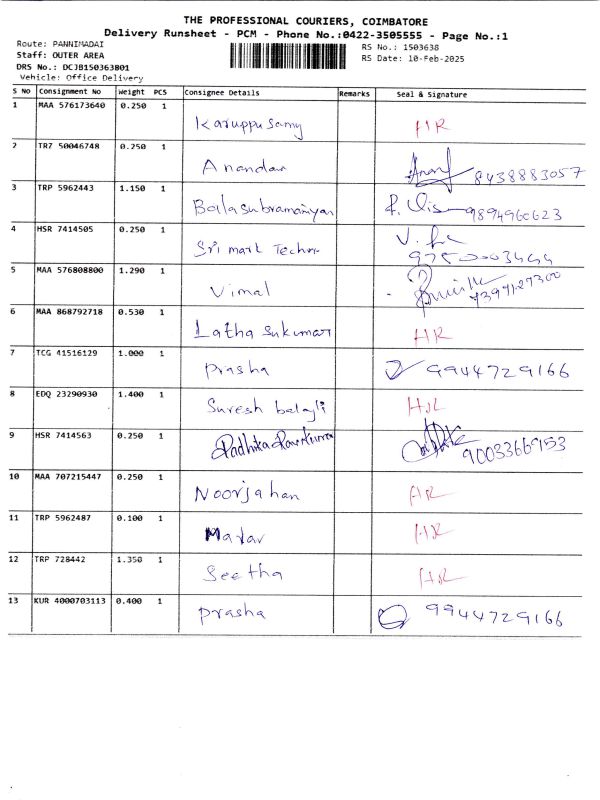 THE PROFESSIONAL COURIERS, COIMBATORE
Delivery Runsheet - PCM - Phone No.:0422-3505555 - Page No.:1
Route: PANNIMADAI
RS No.: 1503638
Staff: OUTER AREA
RS Date: 10-Feb-2025
DRS No.: DCJB150363801
Vehicle: Office Delivery
S No Consignment No Weight PCS Consignee Details Remarks Seal & Signature
1 MAA 576173640 0.250 1 Karuppusamy HR
2 TRZ 50046748 0.250 1 Anandan 8438883057
3 TRP 5962443 1.150 1 Balasubramaniyan 9894960623
4 HSR 7414505 0.250 1 Sri mark Techno
5 MAA 576808800 1.290 1 Vimal 7397127300
6 MAA 868792718 0.530 1 Latha Sukumar HR
7 TCG 41516129 1.000 1 Prasha 9944729166
8 EDQ 23290930 1.400 1 Suresh balaji
9 HSR 7414563 0.250 1 Radhika 9003366953
10 MAA 707215447 0.250 1 Noorjahan HR
11 TRP 5962487 0.100 1 HR
12 TRP 728442 1.350 1 Seetha HR
13 KUR 4000703113 0.400 1 Prasha 9944729166